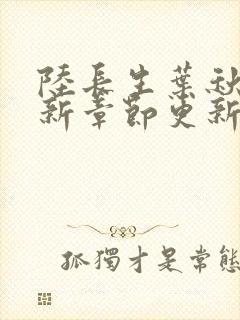 陸長生葉秋
新章節更新
孤獨才是常態